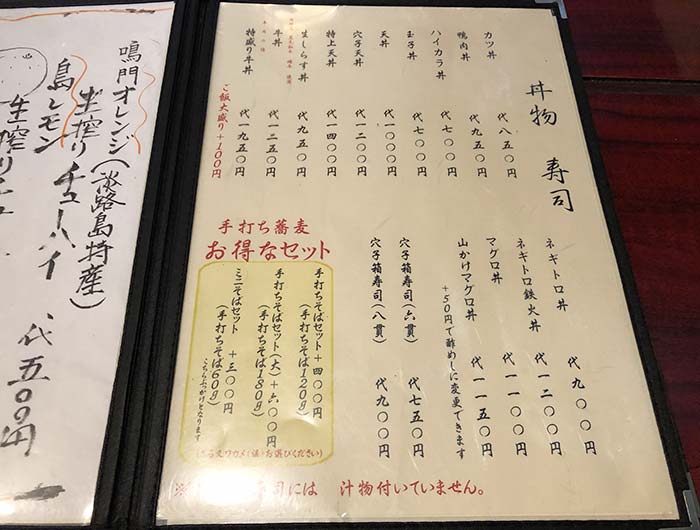 丼物　寿司
カツ丼　代八五〇円
鴨肉丼　代九五〇円
ハイカラ丼　代七〇〇円
玉子丼　代七〇〇円
天丼　代一〇〇〇円
穴子天丼　代一二〇〇円
特上天丼　代一四〇〇円
生しらす丼　代九五〇円
牛丼　代一二五〇円
特盛り牛丼　代一九五〇円
ご飯大盛り+100円
ネギトロ丼　代九〇〇円
ネギトロ鉄火丼　代一二〇〇円
マグロ丼　代一一〇〇円
山かけマグロ丼　代一一五〇円
+50円で酢めしに変更できます
穴子箱寿司(六貫)　代七五〇円
穴子箱寿司(八貫)　代九〇〇円
手打ち蕎麦
お得なセット
手打ちそばセット+四〇〇円
(手打ちそば120g)
手打ちそばセット(大)+六〇〇円
(手打ちそば180g)
ミニそばセット　+三〇〇円
(手打ちそば60g)
こちらぶっかけとなります
お選びください)
寿司には　汁物付いていません。
鳴門オレンジ(淡路島特産)
生搾りチューハイ　代五〇〇円
島レモン
生搾り